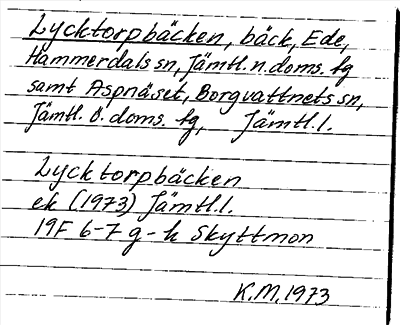 Lycktorpbäcken, bäck, Ede,
Hammerdals sn, Jämtl. n. doms. tg
samt Aspnäset, Borgvattnets sn,
Jämtl. ö. doms. tg, Jämtl. l.
Lycktorpbäcken
ek (1973) Jämtl. l.
19F 6-7 g-h Skyttmon
K.M. 1973